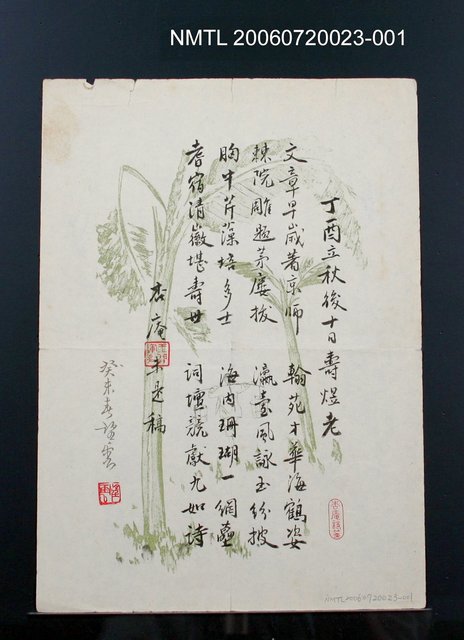 NMTL 20060720023-001
丁酉立秋後十日壽煜老
文章早歲著京師 翰苑才華海鶴姿
棘院雕題茅屢拔 瀛臺風詠玉紛披
胸中芹藻培多士 海內珊瑚一網
耆宿清徽堪壽世 詞壇競獻九如詩
杏庵未是稿
癸未春
NMTL20060720023-001